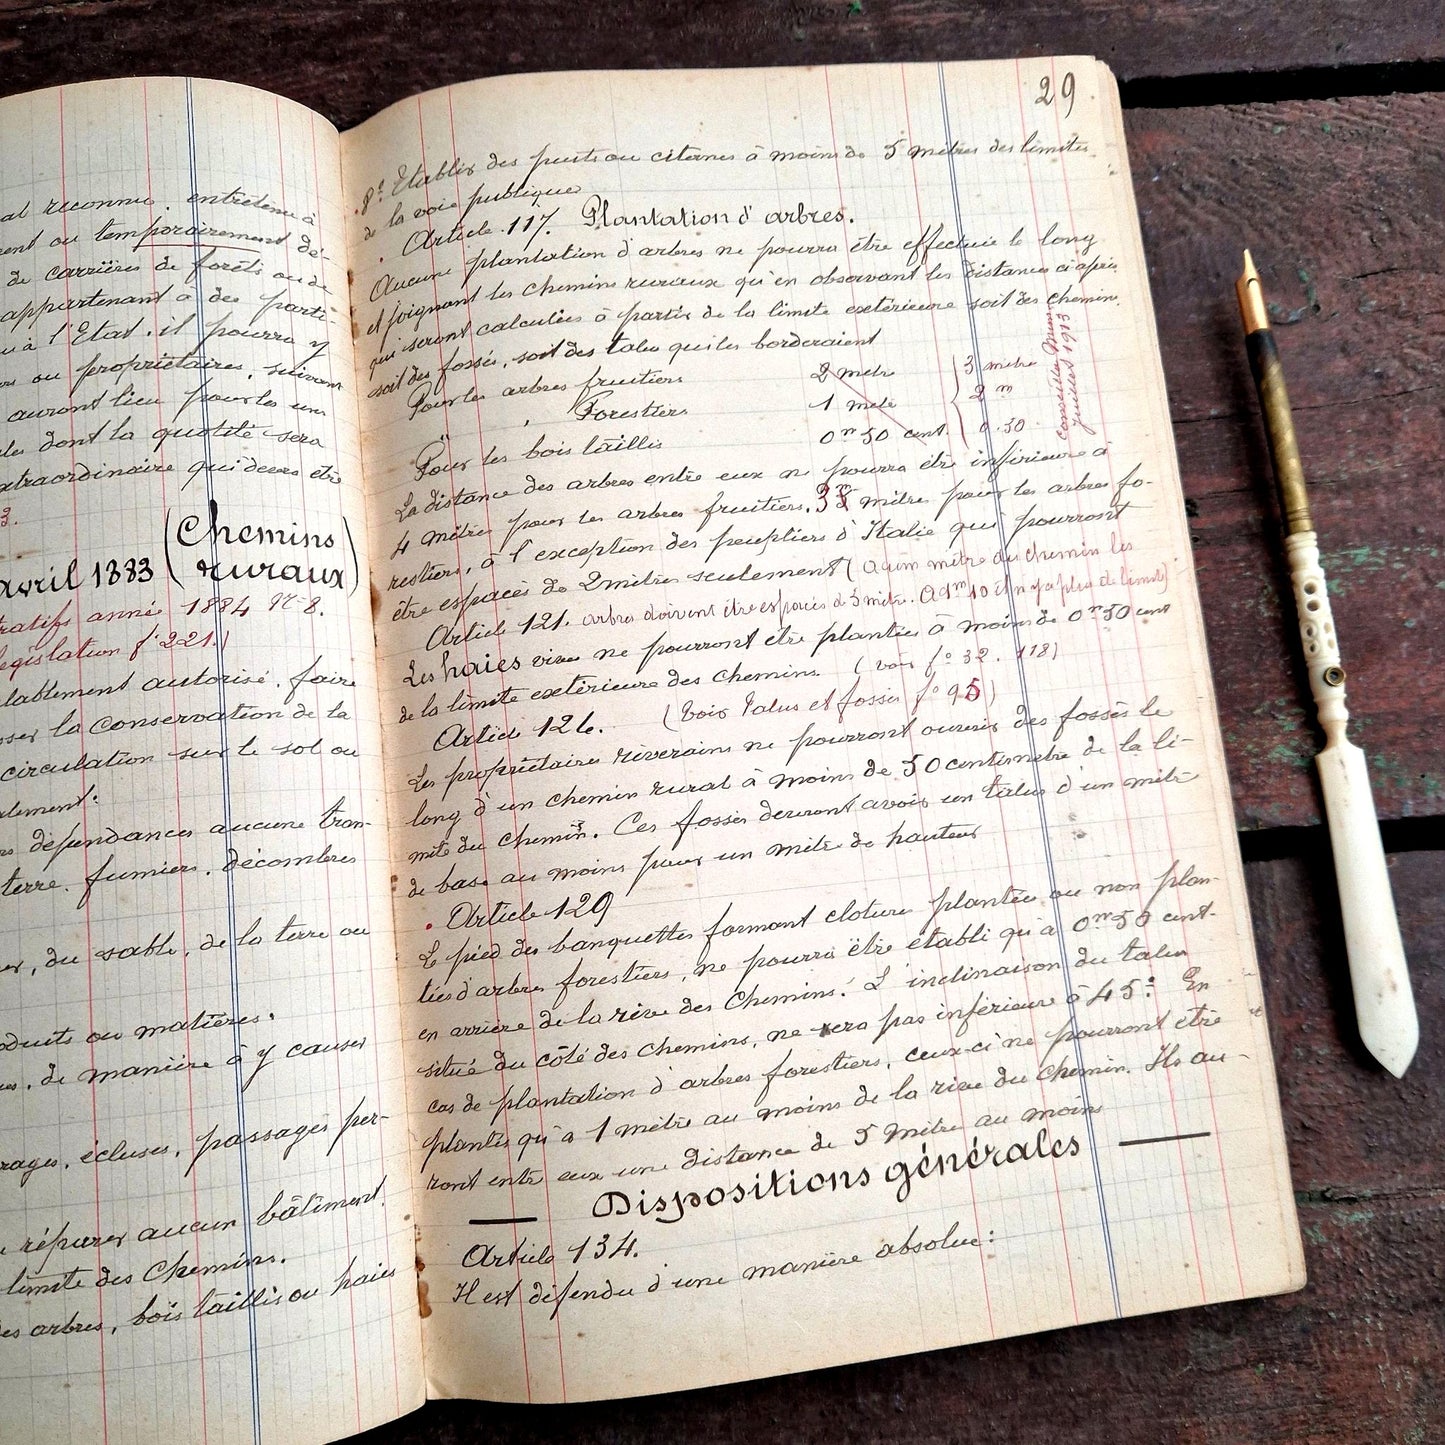 al reconnu, entretenu à
ment ou temporairement dé-
de carrières de forêts ou de
appartenant à des parti-
ou à l'Etat, il pourra y
ou propriétaires, suivant
auront lieu pour les uns
dont la quotité sera
extraordinaire qui devra être
3.
avril 1883 (Chemins
ruraux)
année 1884 N° 8.
législation f° 221.)
autorisé, faire
la conservation de la
circulation sur le sol ou
dépendances aucune tran-
terre, fumiers, décombres
, du sable, de la terre ou
produits ou matières.
, de manière à y causer
, écluses, passages per-
réparer aucun bâtiment,
limite des Chemins.
des arbres, bois taillis ou haies
29
8° Etablir des puits ou citernes à moins de 5 mètres des limites
de la voie publique
Article 117. Plantation d'arbres.
Aucune plantation d'arbres ne pourra être effectuée le long
et joignant les chemins ruraux qu'en observant les distances ci-après
qui seront calculées à partir de la limite extérieure soit des chemins,
soit des fossés, soit des talus qui les borderaient
Pour les arbres fruitiers 2 mètres 3 mètres
" Forestiers 1 mètre 2 m
Pour les bois taillis 0m 50 cent. 0.50
Conseil Mun.
Juillet 1913
La distance des arbres entre eux ne pourra être inférieure à
4 mètres pour les arbres fruitiers, 3 mètres pour les arbres fo-
restiers, à l'exception des peupliers d'Italie qui pourront
être espacés de 2 mètres seulement (à un mètre du chemin les
Article 121. arbres doivent être espacés de 3 mètr. A 1m10 il n'y a plus de limite)
Les haies vives ne pourront être plantées à moins de 0m50 cent
de la limite extérieure des chemins. (voir f° 32. 118)
Article 126. (Voir Talus et fossés f° 95)
Les propriétaires riverains ne pourront ouvrir des fossés le
long d'un chemin rural à moins de 50 centimètres de la li-
mite du chemin. Ces fossés devront avoir un talus d'un mètre
de base au moins pour un mètre de hauteur
Article 129
Le pied des banquettes formant cloture plantées ou non plan-
tées d'arbres forestiers, ne pourra être établi qu'à 0m50 cent.
en arrière de la rive des Chemins. L'inclinaison du talus
situé du côté des chemins, ne sera pas inférieure à 45°. En
cas de plantation d'arbres forestiers, ceux-ci ne pourront être
plantés qu'à 1 mètre au moins de la rive du Chemin. Ils au-
ront entre eux une distance de 5 Mètres au moins
Dispositions générales
Article 134.
Il est défendu d'une manière absolue: